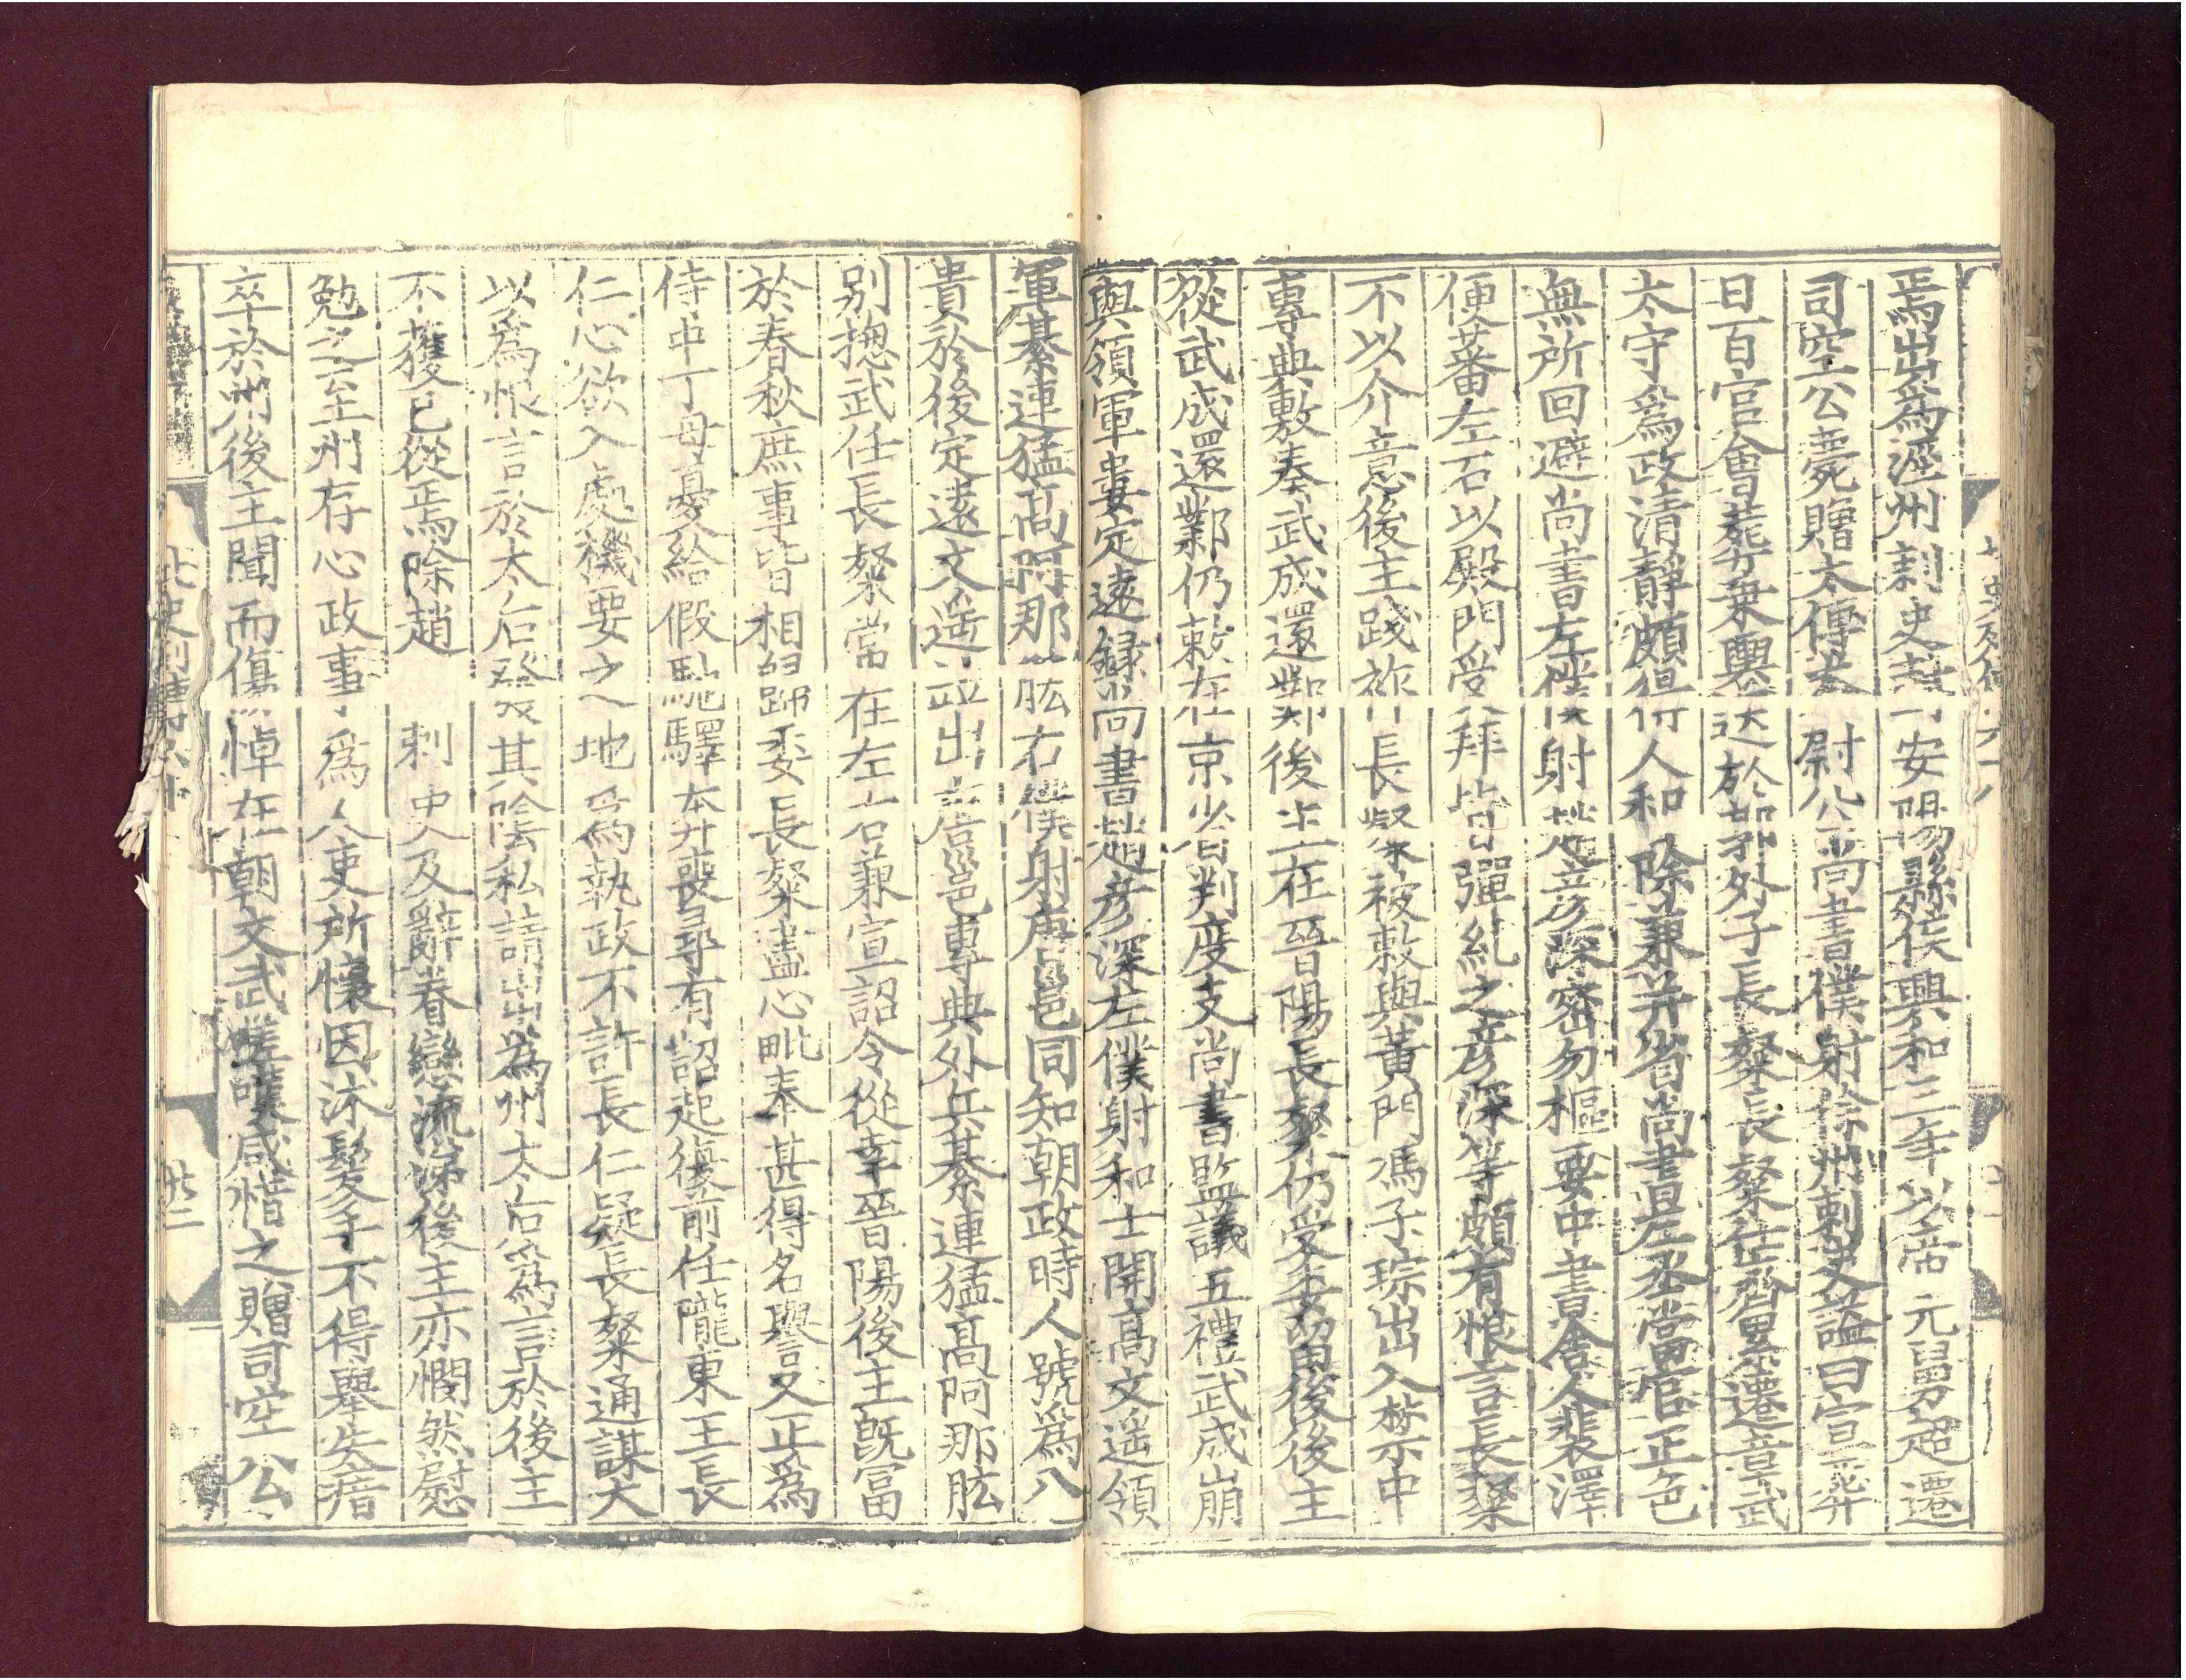 焉出爲涇州刺史封安陽縣侯興和三年以帝元舅超遷
司空公薨贈太傅太尉公尚書僕射徐州刺史諡曰宣葬
日百官會葬乘輿送於郊外子長粲長粲仕齊累遷章武
太守爲政清靜頗得人和除兼并省尚書左丞當官正色
無所回避尚書左僕射趙彦深密勿樞要中書舍人裴澤
便蕃左右以殿門受拜皆彈糺之彦深等頗有恨言長粲
不以介意後主踐祚長粲被敕與黃門馮子琮出入禁中
專典敷奏武成還鄴後主在晉陽長粲仍受委留後後主
從武成還鄴仍敕在京省判度支尚書監議五禮武成崩
與領軍婁定遠録尚書趙彦深左僕射和士開高文遥領
軍綦連猛高阿那肱右僕射唐邕同知朝政時人號爲八
貴於後定遠文遥並出唐邕專典外兵綦連猛高阿那肱
别揔武任長粲常在左右兼宣詔令從幸晉陽後主旣富
於春秋庶事皆相歸委長粲盡心毗奉甚得名譽又正爲
侍中丁母憂給假馳驛奔喪尋有詔起復前任隴東王長
仁心欲入處機要之地爲執政不許長仁疑長粲通謀大
以爲恨言於太后發其陰私請出爲州太后爲言於後主
不獲已從焉除趙 刺史及辭眷戀流涕後主亦憫然慰
勉之至州存心政事爲人吏所懷因沐髮手不得舉失瘖
卒於州後主聞而傷悼在朝文武嗟嘆咸惜之贈司空公
北史列傳
廿二